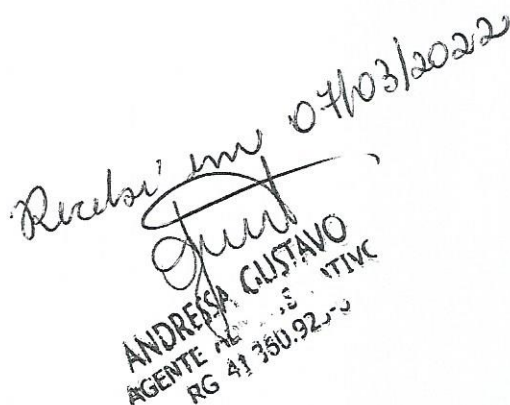 Recebi em 07/03/2022
ANDRESSA GUSTAVO
AGENTE
RG 41 350.92